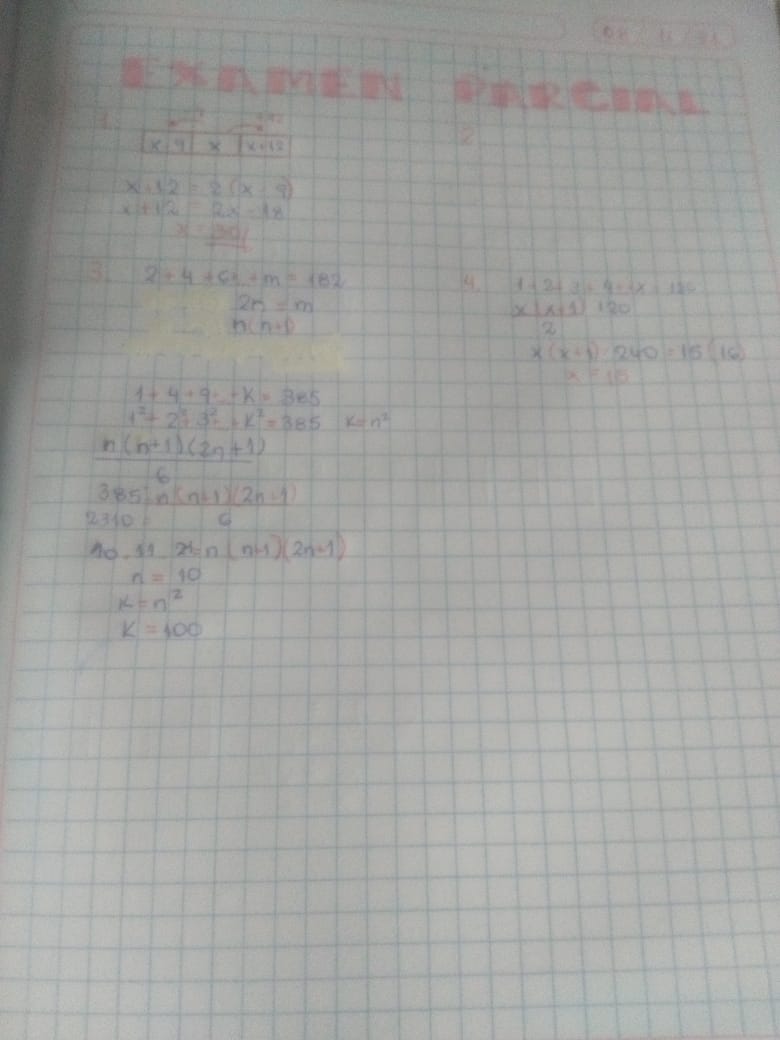 EXAMEN PARCIAL
1.
x 9 x x+12
x+12 = 2(x-9)
x+12 = 2x-18
x = 30
2
3. 2+4+6...+m = 182
2n = m
n(n+1)
1+4+9...+K = 385
1²+2²+3²...+K² = 385 K=n²
n(n+1)(2n+1)
6
385 = n(n+1)(2n+1)
2310 = 6
10.11.21 = n(n+1)(2n+1)
n = 10
K = n²
K = 100
4. 1+2+3+4...+x = 120
x(x+1) 120
2
x(x+1) 240 = 15(16)
x = 15